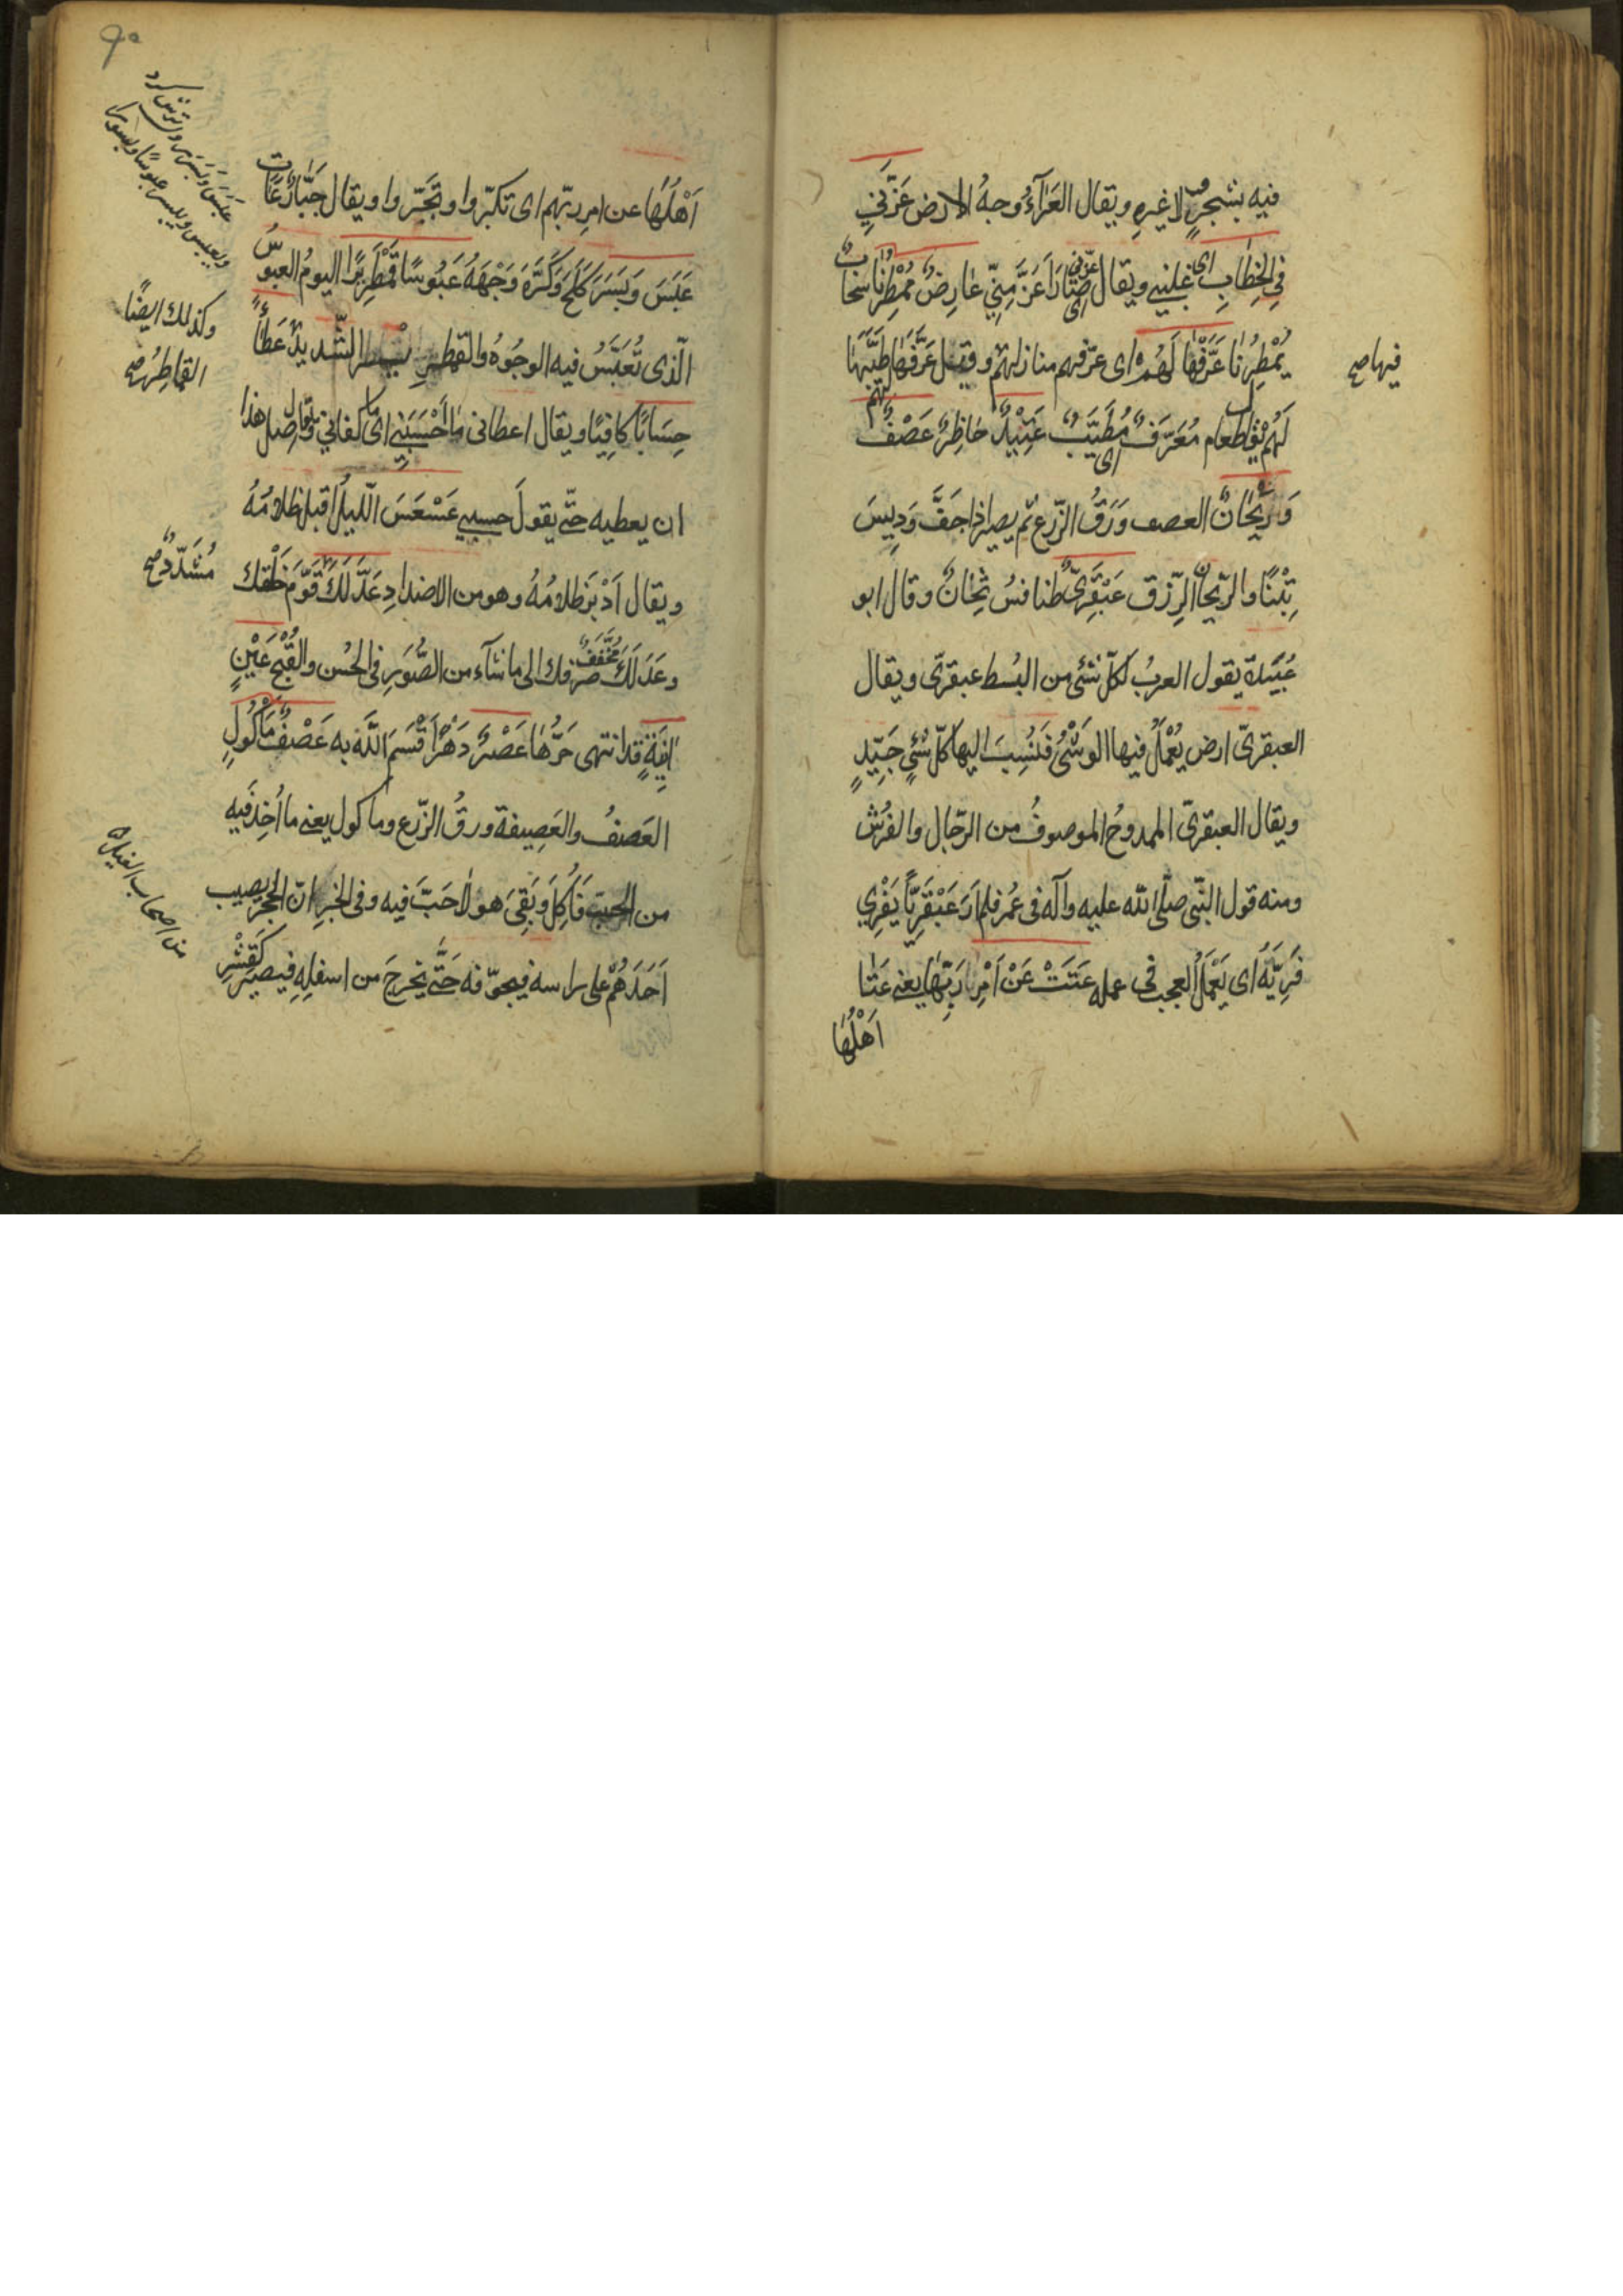 فيه بشجرٍ لا غيرهِ ويقال العَرَآءُ وجهُ الارض عَزَّنِي
فِي الخِطَابِ اى غلبنى ويقال عزّنى اى صَارَ اَعَزَّ مِنِّي عَارِضٌ مُمْطِرُنَا سَحَابٌ
يُمْطِرُنَا عَرَّفَهَا لَهُمْ اى عرّفهم منازلهم وقيل عَرَّفَهَا طَيَّبَهَا لهم
فيها صح
يقال طعام مُعَرَّفٌ اى مُطَيَّبٌ عَتِيْدٌ حَاضِرٌ عَصْفٌ
وَرَيْحَانٌ العصف وَرَقُ الزّرع ثم يصير اذا جَفَّ وَدِيسَ
تِبْنًا والرّيحان الرّزق عَبْقَرِيٌّ طنافسُ ثِخَانٌ وقال ابو
عُبَيدة يقول العربُ لكلّ شئ من البُسط عبقرىّ ويقال
العبقرىّ ارض يُعْمَلُ فيها الوَشْىُ فَنُسِبَ اليها كلّ شئٍ جَيِّدٍ
ويقال العبقرىّ الممدوحُ الموصوفُ من الرّجال والفرُش
ومنه قول النّبى صلّى الله عليه وآله فى عُمر فلم اَرَ عَبْقَرِيًّا يَفْرِي
فَرِيَّهُ اى يَعْمَلُ العجب فى عمله عَتَتْ عَنْ اَمْرِ رَبِّهَا يعنى عَتَا
اَهْلُهَا
اَهْلُهَا عن امرِ ربّهم اى تكبّروا وتَجَبَّروا ويقال جَبَّارٌ عَاتٍ
عَبَسَ وَبَسَرَ كَلَحَ وَكَرَّهَ وَجْهَهُ عَبُوسًا قَمْطَرِيرًا اليومُ العبوسُ
الّذى تُعَبَّسُ فيه الوجُوهُ والقمطرير الشّديد عَطَاءً
وكذلك ايضًا
القماطِرُ صح
حِسَابًا كافِيًا ويقال اعطانى ما اَحْسَبَنِي اى ما كفانى ويقال اصل هذا
ان يعطيه حتّى يقولَ حسبى عَسْعَسَ اللّيلُ اقبل ظلامُهُ
ويقال اَدْبَرَ ظلامُهُ وهو من الاضداد عَدَّلَكَ قَوَّمَ خَلْقَك
مُشَدّدٌ صح
وعَدَلَكَ مُخَفَّفٌ صرفك الى ما شآء من الصُّوَرِ فى الحُسن والقُبْحِ عَيْنٍ
آنِيَةٍ قد انتهى حَرُّهَا عَصْرٌ دَهْرٌ اَقْسَمَ اللهُ به عَصْفٌ مَأْكُولٍ
العَصفُ والعَصِيفة ورقُ الزّرع وماكول يعنى ما اُخِذَ فيه
من الحبّ فَاُكِلَ وَبَقِيَ هو لاحَبَّ فيه وفى الخبرِ انّ الحجر يصيب
من اصحاب الفيل
اَحَدَهُمْ على راسه فيجوّفه حَتّى يخرجَ من اسفلِهِ فيصير كَقِشْرِ